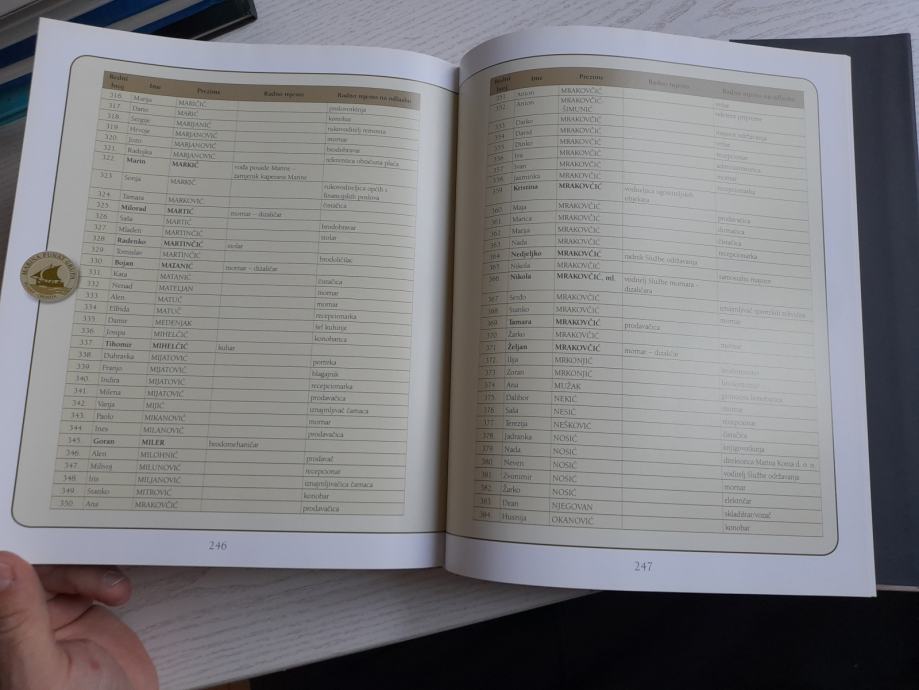 Redni broj Ime Prezime Radno mjesto Radno mjesto na odlasku
316. Marija MARIČIĆ
317. Dario MARIĆ poslovotkinja
318. Sergije MARIJANIĆ konobar
319. Hrvoje MARJANOVIĆ rukovoditelj remonta
320. Jozo MARJANOVIĆ mornar
321. Radojka MARJANOVIĆ brodobravar
322. Marin MARKIĆ vođa posade Marine - zamjenik kapetana Marine referentica obračuna plaća
323. Sonja MARKIĆ rukovoditeljica općih i financijskih poslova
324. Tamara MARKOVIĆ čistačica
325. Milorad MARTIĆ mornar – dizaličar
326. Saša MARTIĆ brodobravar
327. Mladen MARTINČIĆ stolar
328. Radenko MARTINČIĆ stolar
329. Tomislav MARTINČIĆ brodoličilac
330. Bojan MATANIĆ mornar – dizaličar
331. Kata MATANIĆ čistačica
332. Nenad MATELJAN mornar
333. Alen MATUĆ mornar
334. Elfrida MATUĆ recepcionarka
335. Damir MEDENJAK šef kuhinje
336. Josipa MIHELČIĆ konobarica
337. Tihomir MIHELČIĆ kuhar
338. Dubravka MIJATOVIĆ portirka
339. Franjo MIJATOVIĆ blagajnik
340. Indira MIJATOVIĆ recepcionarka
341. Milena MIJATOVIĆ prodavačica
342. Vanja MIJIĆ iznajmljivač čamaca
343. Paolo MIKANOVIĆ mornar
344. Ines MILANOVIĆ prodavačica
345. Goran MILER brodomehaničar
346. Alen MILOHNIĆ prodavač
347. Milivoj MILUNOVIĆ recepcionar
348. Iris MILJANOVIĆ iznajmljivačica čamaca
349. Stanko MITROVIĆ konobar
350. Ana MRAKOVČIĆ prodavačica
246
Redni broj Ime Prezime Radno mjesto Radno mjesto na odlasku
351. Anton MRAKOVČIĆ vrtlar
352. Anton MRAKOVČIĆ ŠIMUNIĆ
353. Darko MRAKOVČIĆ
354. David MRAKOVČIĆ
355. Dinko MRAKOVČIĆ
356. Iva MRAKOVČIĆ recepcionar
357. Ivan MRAKOVČIĆ
358. Jasminka MRAKOVČIĆ mornar
359. Kristina MRAKOVČIĆ voditeljica ugostiteljskih objekata recepcionarka
360. Maja MRAKOVČIĆ
361. Marica MRAKOVČIĆ prodavačica
362. Marija MRAKOVČIĆ
363. Nada MRAKOVČIĆ čistačica
364. Nedjeljko MRAKOVČIĆ radnik Službe održavanja recepcionarka
365. Nikola MRAKOVČIĆ
366. Nikola MRAKOVČIĆ, ml. voditelj Službe mornara - dizaličara
367. Serđo MRAKOVČIĆ
368. Stanko MRAKOVČIĆ
369. Tamara MRAKOVČIĆ prodavačica mornar
370. Žarko MRAKOVČIĆ
371. Željan MRAKOVČIĆ mornar – dizaličar mornar
372. Ilija MRKONJIĆ
373. Zoran MRKONJIĆ
374. Ana MUŽAK
375. Dalibor NEKIĆ
376. Saša NESIĆ mornar
377. Terezija NEŠKOVIĆ recepcionar
378. Jadranka NOSIĆ čistačica
379. Nada NOSIĆ knjigovotkinja
380. Neven NOSIĆ direktorica Marina Kornati d. o. o.
381. Zvonimir NOSIĆ voditelj Službe održavanja
382. Žarko NOSIĆ mornar
383. Dean NJEGOVAN električar
384. Husnija OKANOVIĆ skladištar/vozač
konobar
247